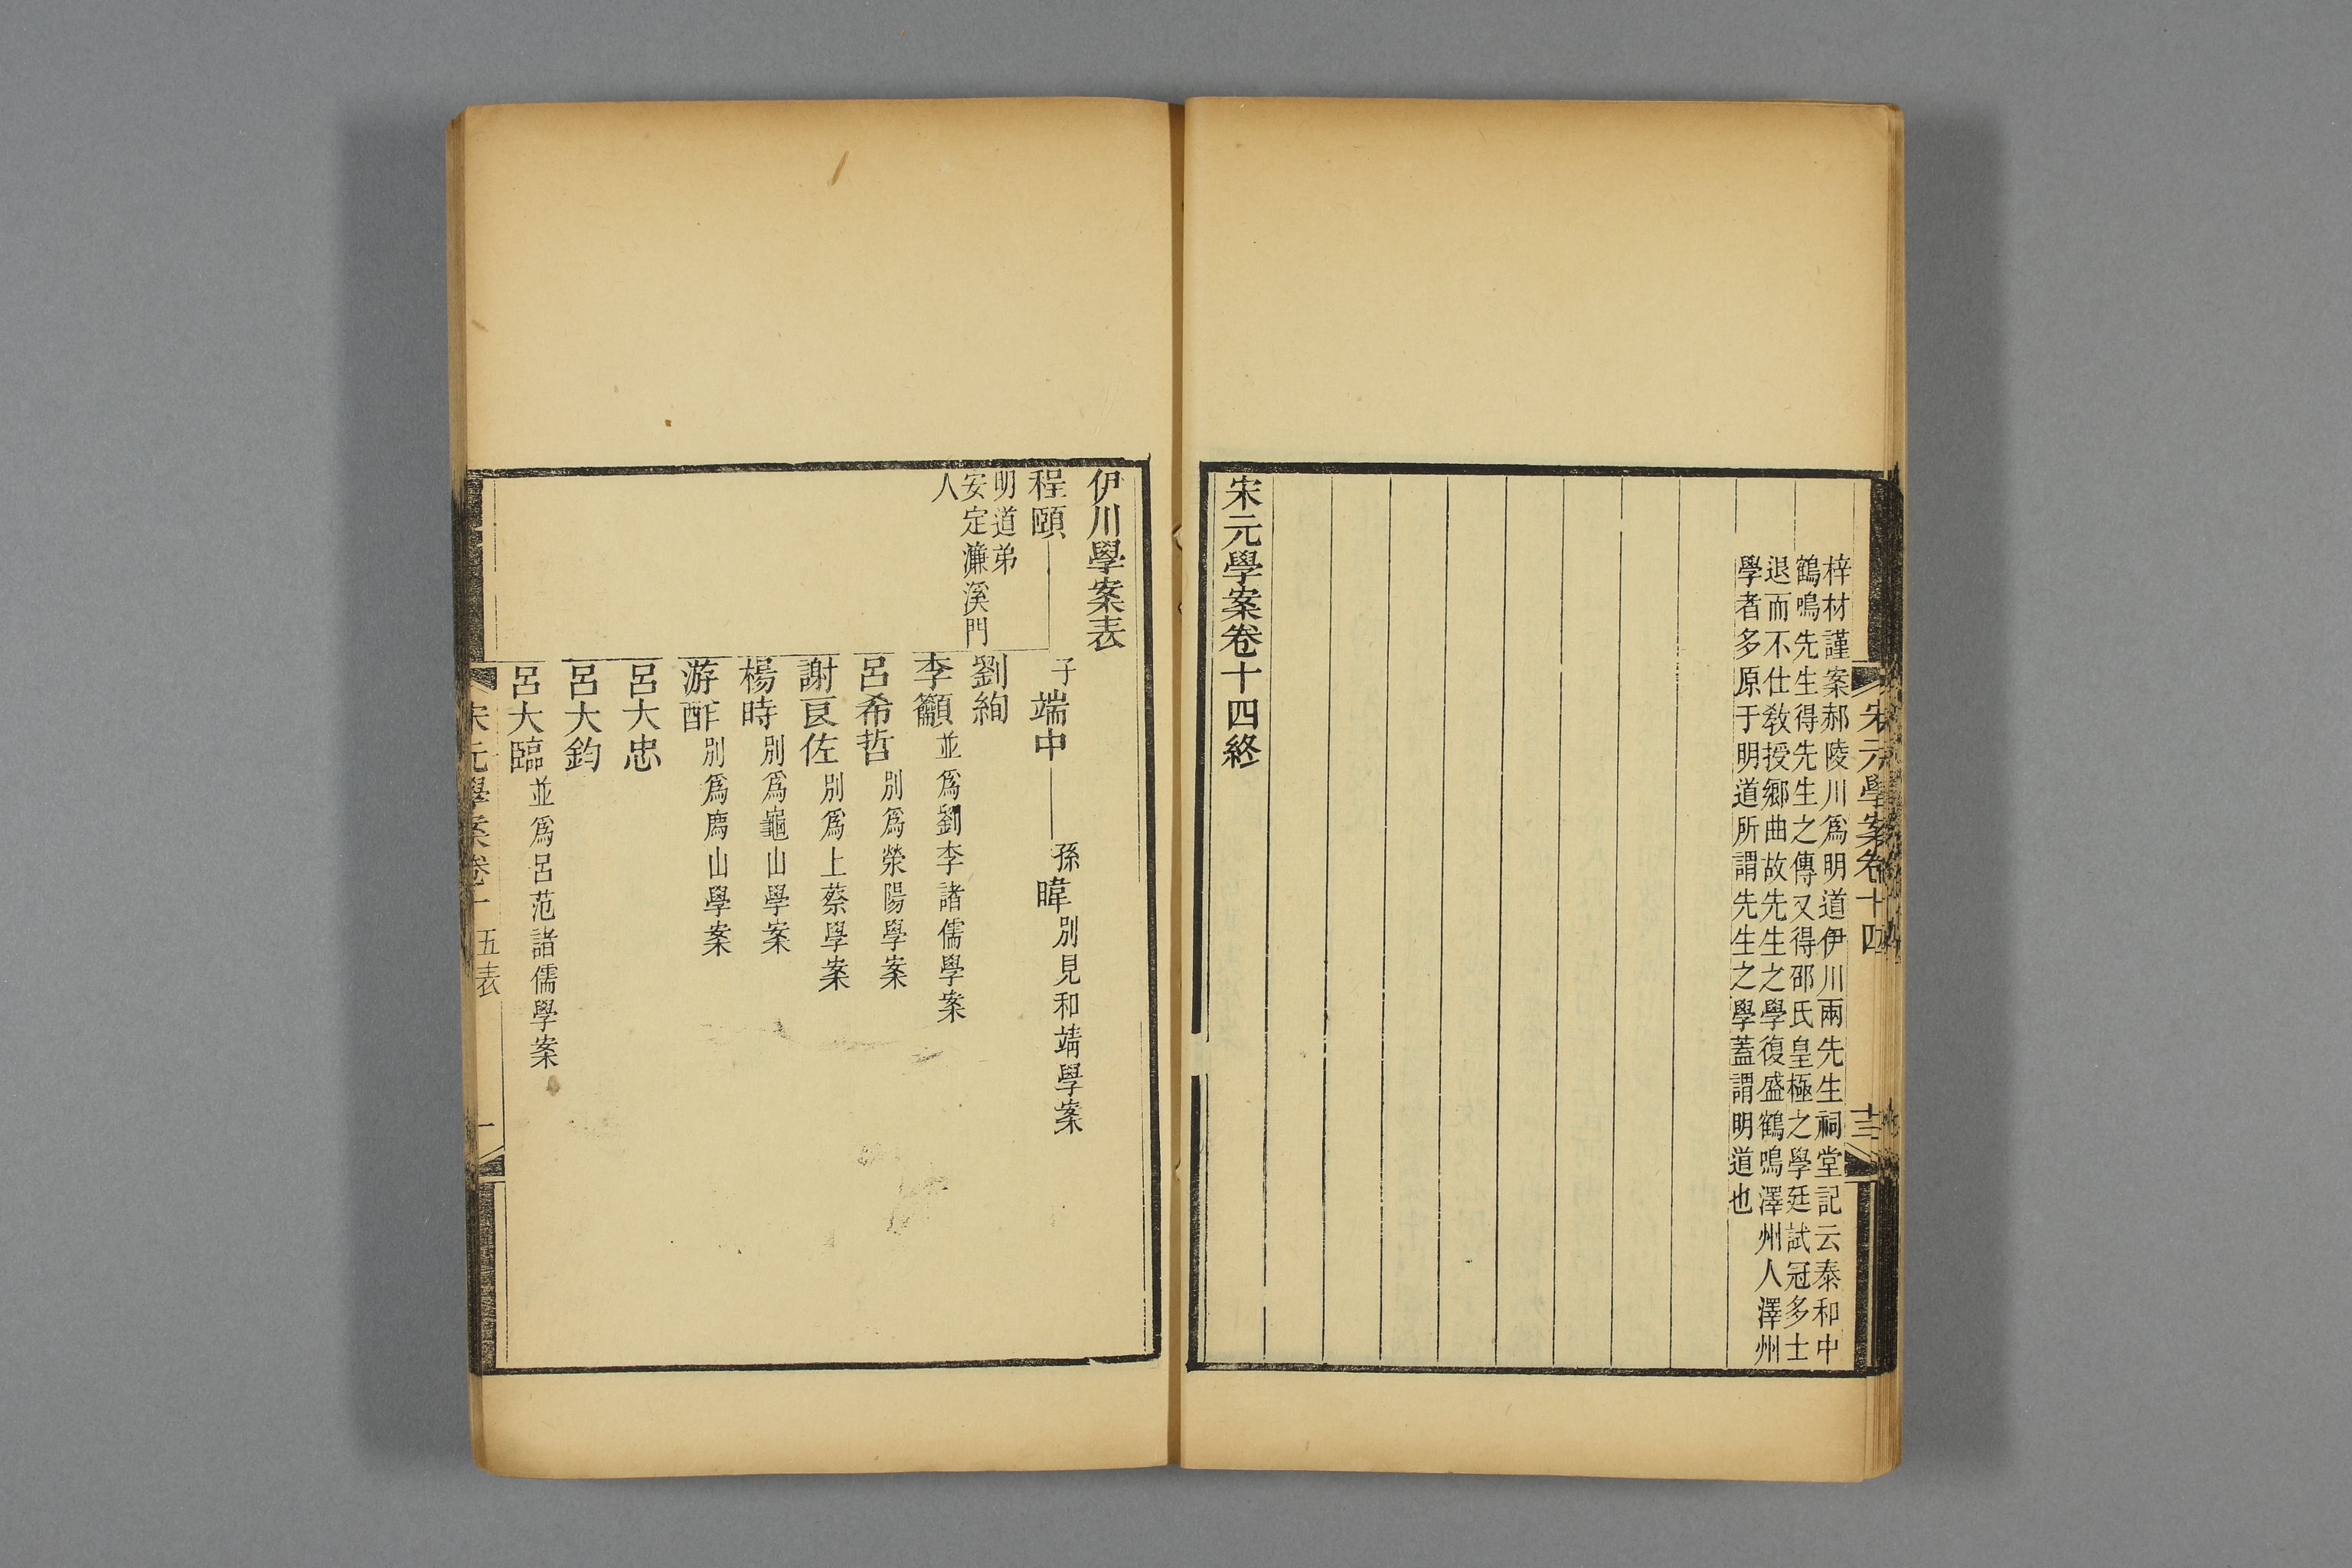 宋元學案卷十四
十三
梓材謹案郝陵川爲明道伊川兩先生祠堂記云泰和中
鶴鳴先生得先生之傳又得邵氏皇極之學廷試冠多士
退而不仕敎授鄉曲故先生之學復盛鶴鳴澤州人澤州
學者多原于明道所謂先生之學蓋謂明道也
宋元學案卷十四終
伊川學案表
程頤
明道弟
安定濂溪門
人
子端中
孫暐別見和靖學案
劉絢
李籲並爲劉李諸儒學案
呂希哲別爲滎陽學案
謝良佐別爲上蔡學案
楊時別爲龜山學案
游酢別爲廌山學案
呂大忠
呂大鈞
呂大臨並爲呂范諸儒學案
宋元學案卷十五表
一